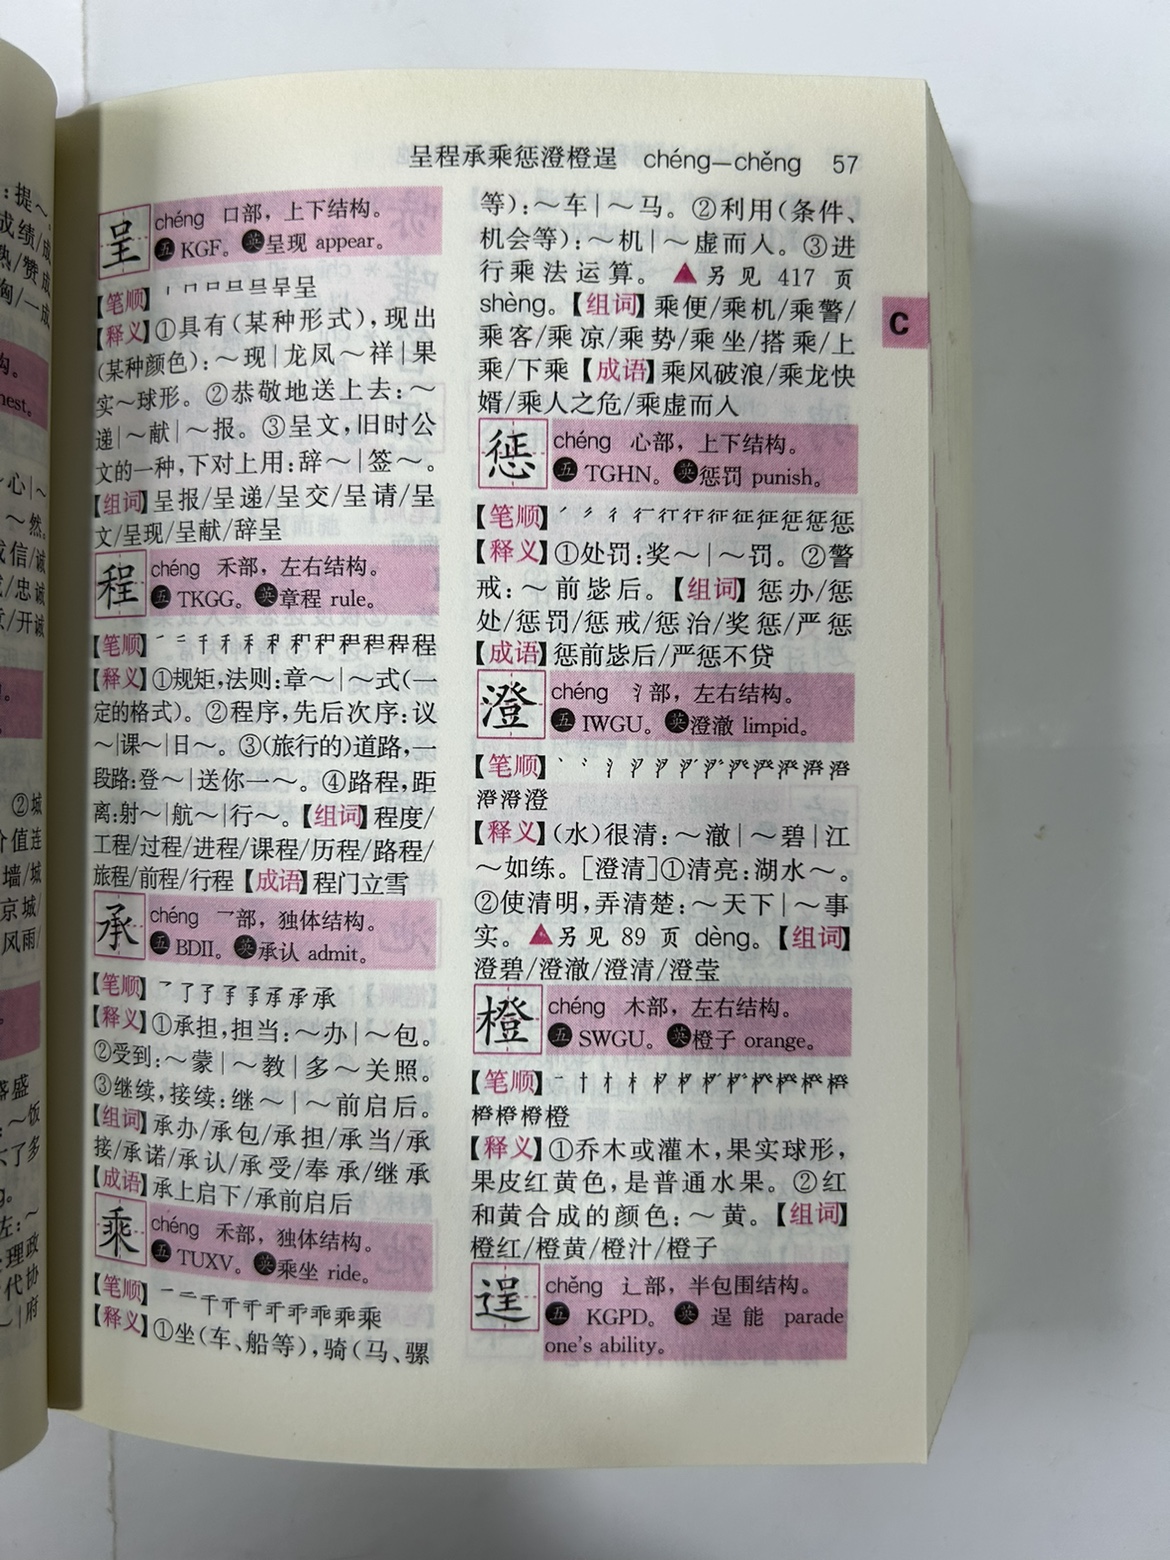 呈程承乘惩澄橙逞 chéng—chěng 57
呈
chéng 口部，上下结构。
五 KGF。 英呈现 appear。
【笔顺】
【释义】①具有(某种形式)，现出
(某种颜色)：～现|龙凤～祥|果
实～球形。②恭敬地送上去：～
递|～献|～报。③呈文，旧时公
文的一种，下对上用：辞～|签～。
【组词】呈报/呈递/呈交/呈请/呈
文/呈现/呈献/辞呈
程
chéng 禾部，左右结构。
五 TKGG。 英章程 rule。
【笔顺】
【释义】①规矩，法则：章～|～式(一
定的格式)。②程序，先后次序：议
～|课～|日～。③(旅行的)道路，一
段路：登～|送你一～。④路程，距
离：射～|航～|行～。【组词】程度/
工程/过程/进程/课程/历程/路程/
旅程/前程/行程【成语】程门立雪
承
chéng 乛部，独体结构。
五 BDII。 英承认 admit。
【笔顺】
【释义】①承担，担当：～办|～包。
②受到：～蒙|～教|多～关照。
③继续，接续：继～|～前启后。
【组词】承办/承包/承担/承当/承
接/承诺/承认/承受/奉承/继承
【成语】承上启下/承前启后
乘
chéng 禾部，独体结构。
五 TUXV。 英乘坐 ride。
【笔顺】
【释义】①坐(车、船等)，骑(马、骡
等)：～车|～马。②利用(条件、
机会等)：～机|～虚而入。③进
行乘法运算。▲另见 417 页
shèng。【组词】乘便/乘机/乘警/
乘客/乘凉/乘势/乘坐/搭乘/上
乘/下乘【成语】乘风破浪/乘龙快
婿/乘人之危/乘虚而入
惩
chéng 心部，上下结构。
五 TGHN。 英惩罚 punish。
【笔顺】
【释义】①处罚：奖～|～罚。②警
戒：～前毖后。【组词】惩办/惩
处/惩罚/惩戒/惩治/奖惩/严惩
【成语】惩前毖后/严惩不贷
澄
chéng 氵部，左右结构。
五 IWGU。 英澄澈 limpid。
【笔顺】
【释义】(水)很清：～澈|～碧|江
～如练。[澄清]①清亮：湖水～。
②使清明，弄清楚：～天下|～事
实。▲另见 89 页 dèng。【组词】
澄碧/澄澈/澄清/澄莹
橙
chéng 木部，左右结构。
五 SWGU。 英橙子 orange。
【笔顺】
【释义】①乔木或灌木，果实球形，
果皮红黄色，是普通水果。②红
和黄合成的颜色：～黄。【组词】
橙红/橙黄/橙汁/橙子
逞
chěng 辶部，半包围结构。
五 KGPD。 英 逞能 parade
one's ability。
C